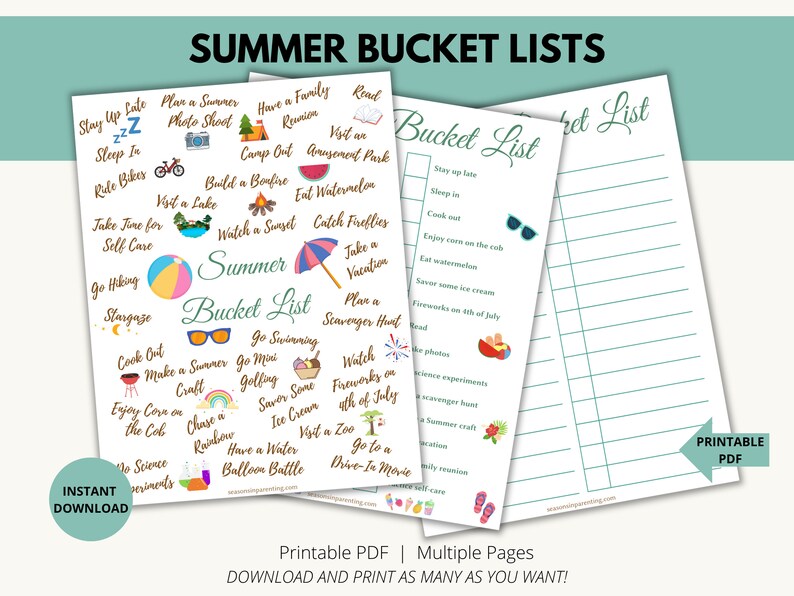 SUMMER BUCKET LISTS
Stay Up Late
Plan a Summer
Photo Shoot
Have a Family
Reunion
Read
Sleep In
Camp Out
Visit an
Amusement Park
Ride Bikes
Build a Bonfire
Eat Watermelon
Visit a Lake
Take Time for
Self Care
Watch a Sunset
Catch Fireflies
Go Hiking
Summer
Bucket List
Take a
Vacation
Stargaze
Plan a
Scavenger Hunt
Cook Out
Make a Summer
Craft
Go Swimming
Go Mini
Golfing
Watch
Fireworks on
4th of July
Enjoy Corn on
the Cob
Chase a
Rainbow
Savor Some
Ice Cream
Visit a Zoo
Do Science
Have a Water
Balloon Battle
Go to a
Drive-In Movie
seasonsinparenting.com
Bucket List
Stay up late
Sleep in
Cook out
Enjoy corn on the cob
Eat watermelon
Savor some ice cream
Fireworks on 4th of July
Read
photos
science experiments
a scavenger hunt
a Summer craft
vacation
family reunion
self-care
List
seasonsinparenting.com
PRINTABLE
PDF
INSTANT
DOWNLOAD
Printable PDF | Multiple Pages
DOWNLOAD AND PRINT AS MANY AS YOU WANT!